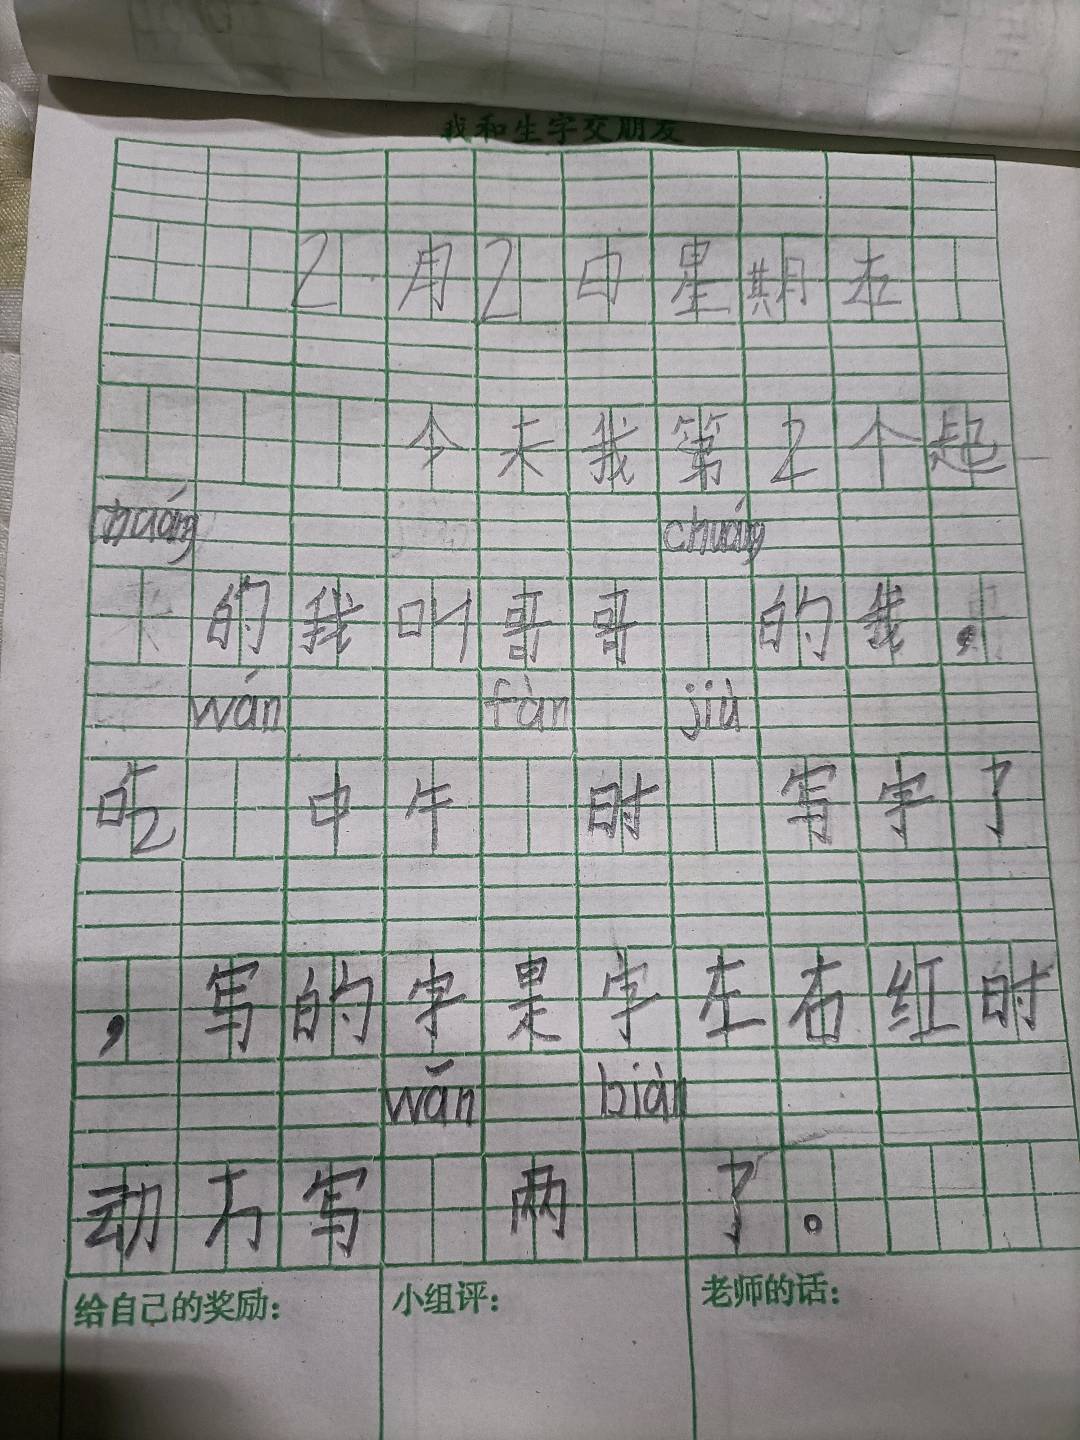 我和生字交朋友
2月2日星期五
今天我第2个起
chuáng chuáng
的我叫哥哥的我，
wán fàn jiù
吃中午时写字了
，写的字是字左右红时
wǎn biàn
动方写两了。
给自己的奖励： 小组评： 老师的话：